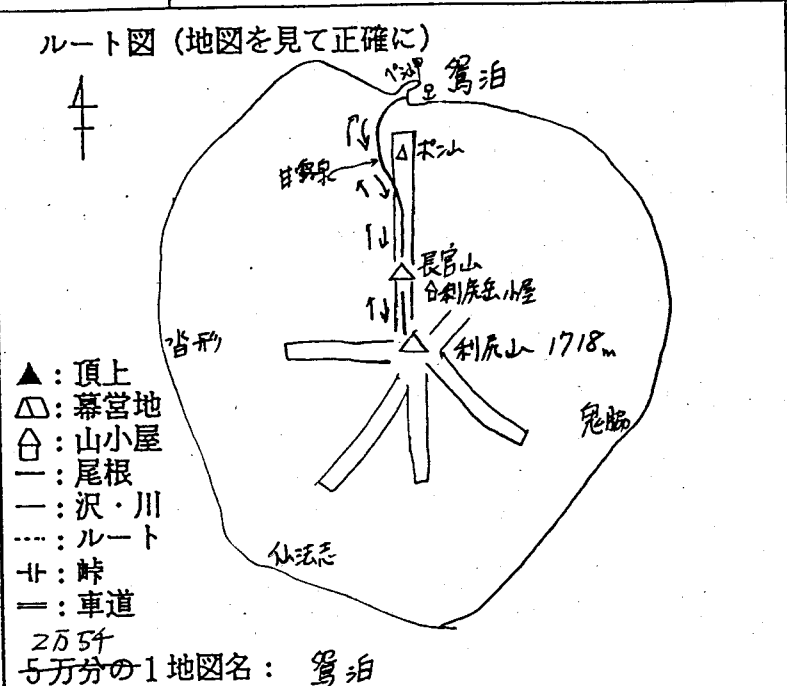 ルート図（地図を見て正確に）
ペシ岬
鴛泊
ポン山
甘露泉
長官山
利尻岳小屋
沓形
利尻山 1718m
鬼脇
仙法志
▲：頂上
：幕営地
：山小屋
―：尾根
―：沢・川
----：ルート
：峠
＝：車道
2万5千
5万分の1地図名： 鴛泊